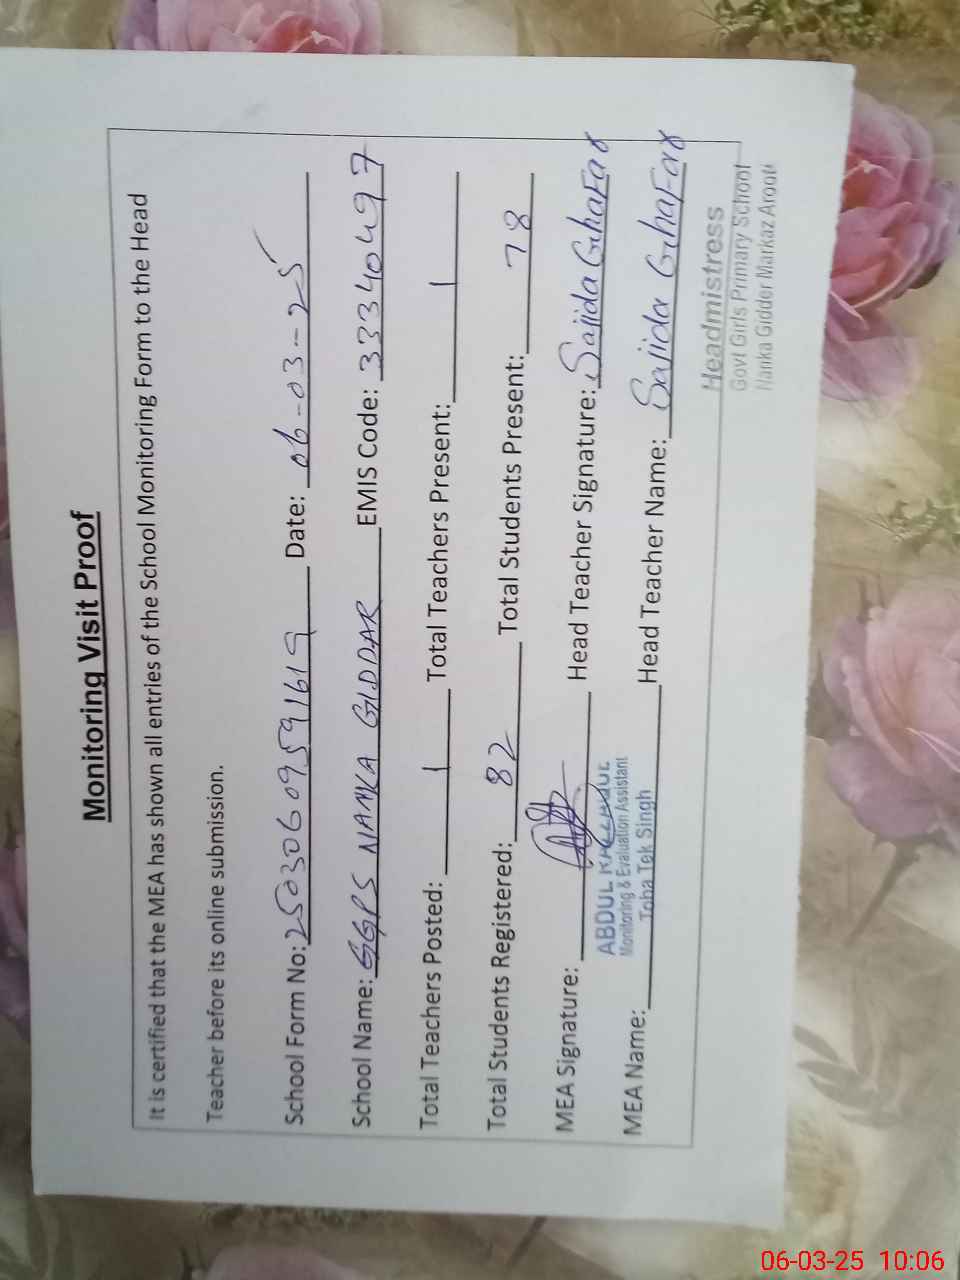 Monitoring Visit Proof
It is certified that the MEA has shown all entries of the School Monitoring Form to the Head
Teacher before its online submission.
School Form No: 25030609591619 Date: 06-03-25
School Name: GGPS NANKA GIDDAR EMIS Code: 33340497
Total Teachers Posted: 1 Total Teachers Present: 1
Total Students Registered: 82 Total Students Present: 78
MEA Signature: Head Teacher Signature: Sajida Ghafar
ABDUL
Monitoring & Evaluation Assistant
Toba Tek Singh
MEA Name: Head Teacher Name: Sajida Ghafar
Headmistress
Govt Girls Primary School
Nanka Gidder Markaz Arooti
06-03-25 10:06